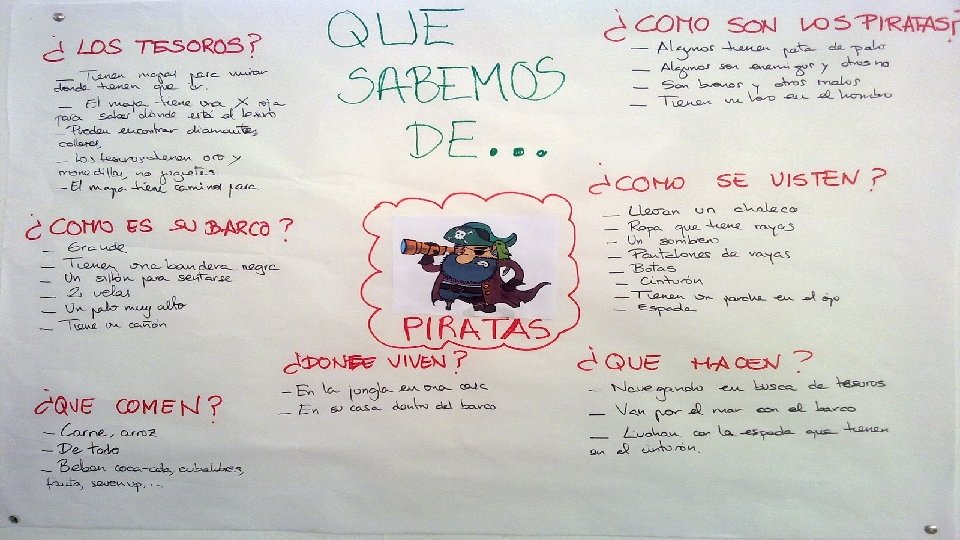 QUE
SABEMOS
DE...
¿LOS TESOROS?
— Tienen mapas para mirar
donde tienen que ir.
— El mapa tiene una X roja
para saber donde está el tesoro
— Pueden encontrar diamantes,
collares,
— Los tesoros tienen oro y
monedillas, no juguetes
- El mapa tiene caminos para
¿COMO ES SU BARCO?
— Grande
— Tienen una bandera negra
— Un sillón para sentarse
— 2 velas
— Un palo muy alto
— Tiene un cañón
¿QUE COMEN?
— Carne, arroz
— De todo
— Beben coca-cola, cubalibres,
fanta, seven up,...
PIRATAS
¿DONDE VIVEN?
- En la jungla en una casa
- En su casa dentro del barco
¿COMO SON LOS PIRATAS?
— Algunos tienen pata de palo
— Algunos son enemigos y otros no
— Son buenos y otros malos
— Tienen un loro en el hombro
¿COMO SE VISTEN?
— Llevan un chaleco
— Ropa que tiene rayas
— Un sombrero
— Pantalones de rayas
— Botas
— Cinturón
— Tienen un parche en el ojo
— Espada
¿QUE HACEN?
— Navegando en busca de tesoros
— Van por el mar con el barco
— Luchan con la espada que tienen
en el cinturón.